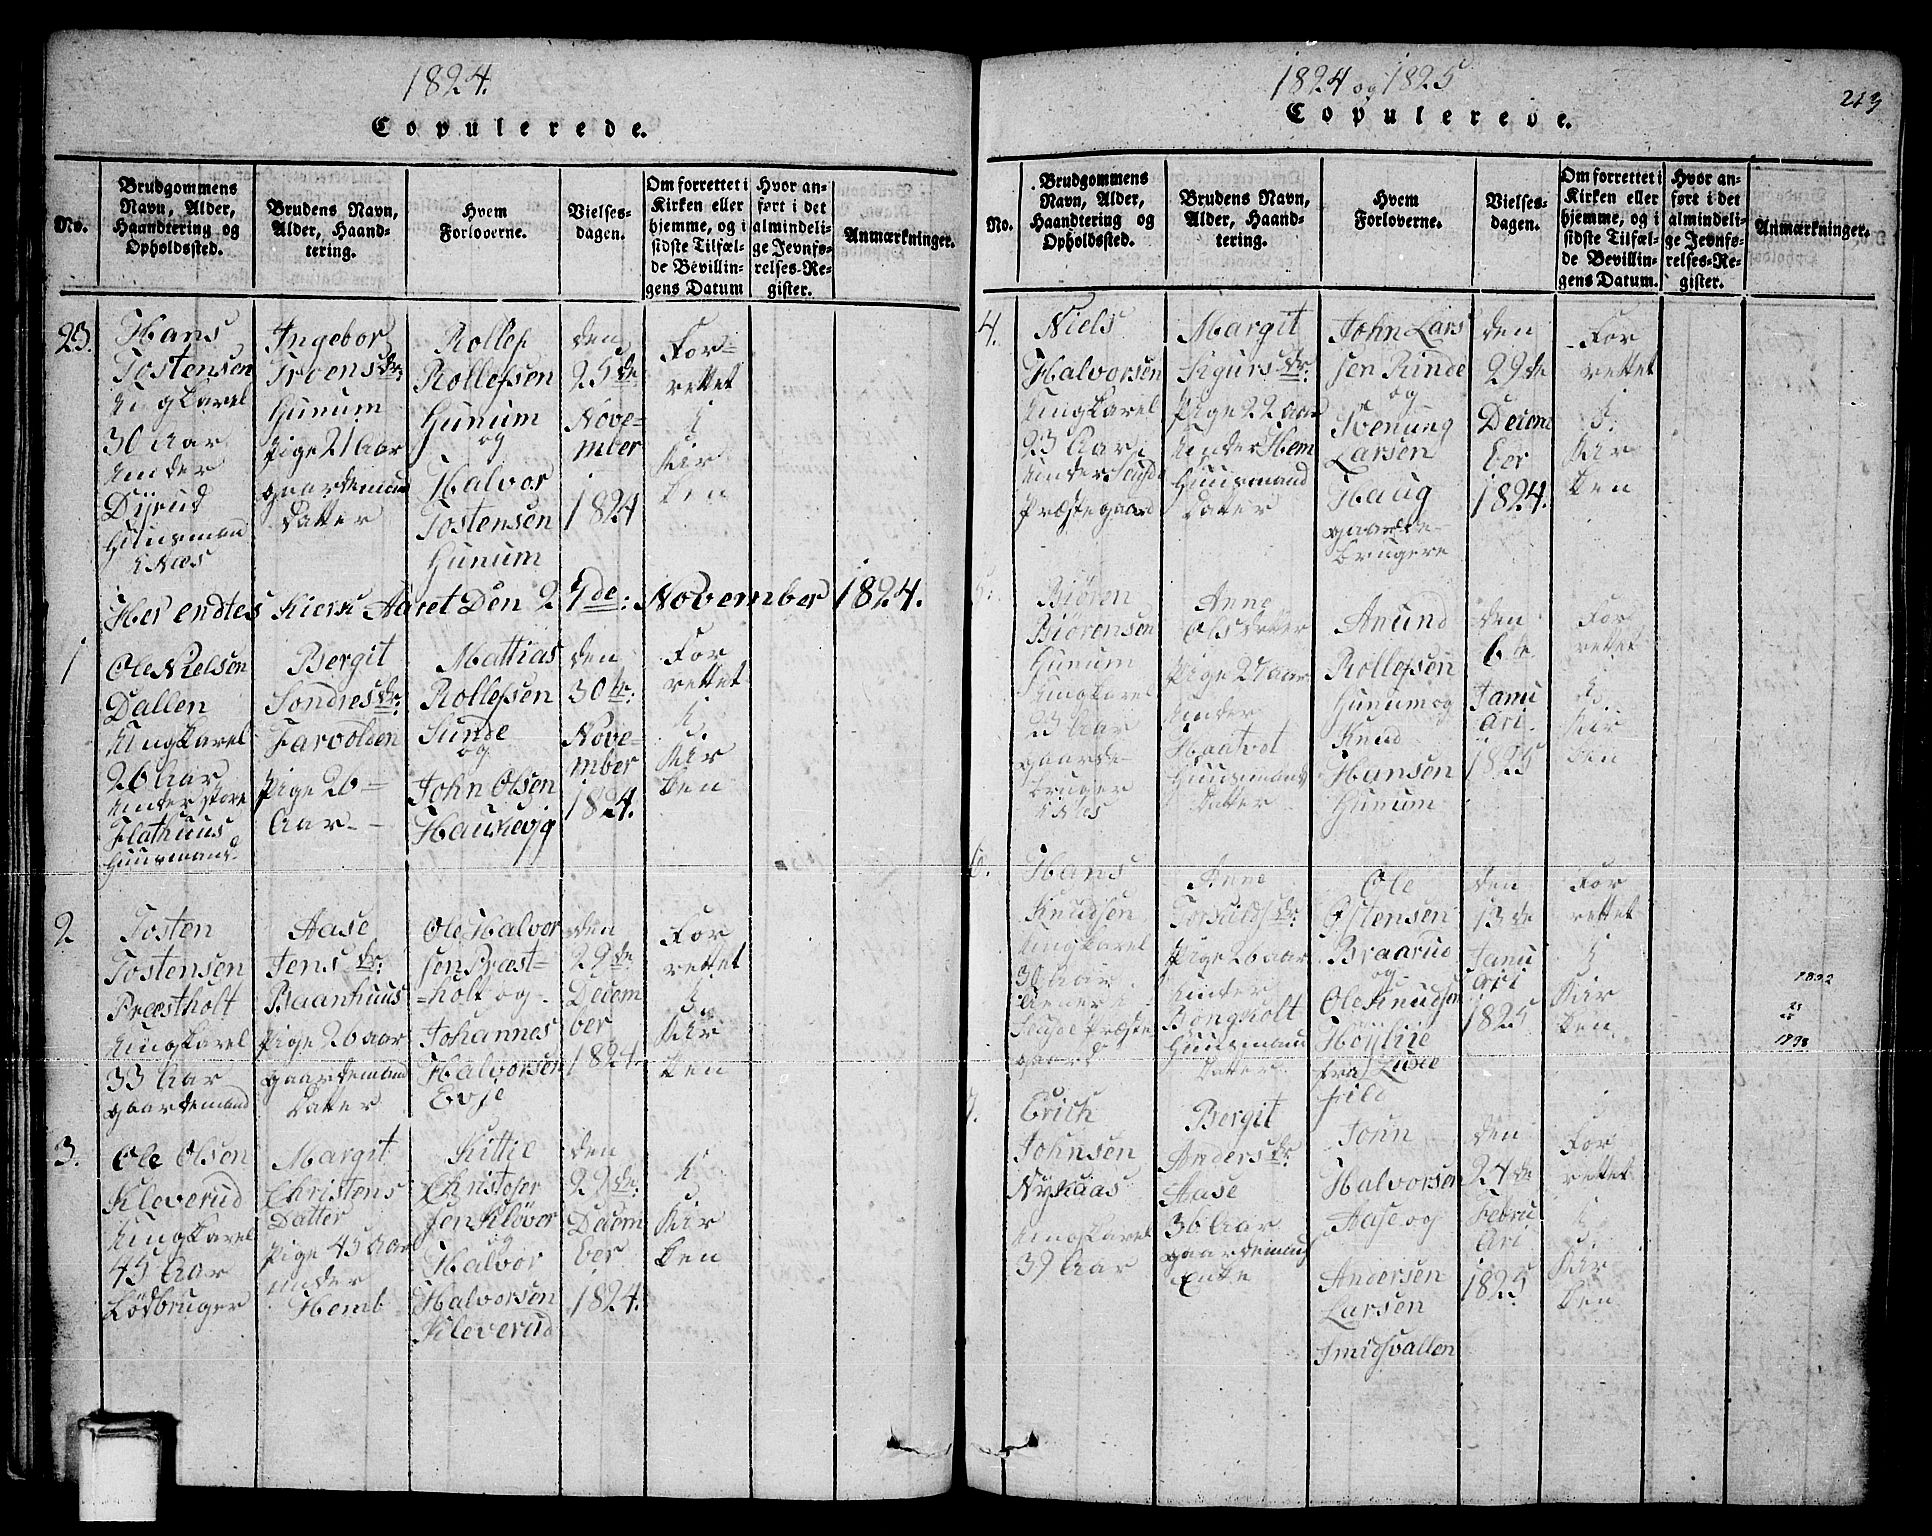 1824.
Copulerede.
No.
Brudgommens
Navn, Alder,
Haandtering og
Opholdssted.
Brudens Navn,
Alder, Haand-
tering.
Hvem
Forloverne.
Vielses-
dagen.
Om forrettet i
Kirken eller
hjemme, og i
sidste Tilfæl-
de Bevillin-
gens Datum
Hvor an-
ført i det
almindeli-
ge Jevnfø-
relses-Re-
gister.
Anmærkninger.
23.
Hans
Tostensen
Ungkarel
30 Aar
Under
Dyrud
Huusmand
Ingebor
Troensdr:
Hunum
Pige 21 Aar
gaardemand
Datter
Rollef
Rollefsen
Hunum
og
Halvor
Tostensen
Hunum
den
25de
Nove-
mber
1824
For-
rettet
i
Kir
ken
Her endtes Kierk Aaret Den 27de: November 1824.
1
Ole Nielsen
Dallen
Ungkarel
26 Aar
Under store
Flathuus
Huusmand
Bergit
Sondresdr:
Farvolden
Pige 26
Aar
Mattias
Rollefsen
Sunde
og
John Olsen
Haukevig
den
30te:
Nove-
mber
1824.
For
rettet
i
Kir
ken
2
Tosten
Tostensen
Præstholt
Ungkarel
33 Aar
gaardemand
Aase
Jensdr:
Baanhuus
Pige 20 aar
gaardemand
Datter
Ole Halvor
sen Præst-
holt og
Johannes
Halvorsen
Evje
den
29de
Decem
ber
1824.
For
rettet
i
Kir
ken
3.
Ole Olsen
Kleverud
Ungkarel
45 Aar
Lödbruger
Margit
Christens
Datter
Pige 45 Aar
under
Hemb
Kittil
Christofer
sen Kløver
og
Halvor
Halvorsen
Kleverud
den
22de:
Decem
ber
1824.
i
Kir
ken
1824 og 1825
213
Copulerede.
No.
Brudgommens
Navn, Alder,
Haandtering og
Opholdssted.
Brudens Navn,
Alder, Haand-
tering.
Hvem
Forloverne.
Vielses-
dagen.
Om forrettet i
Kirken eller
hjemme, og i
sidste Tilfæl-
de Bevillin-
gens Datum.
Hvor an-
ført i det
almindeli-
ge Jevnfø-
relses-Re-
gister.
Anmærkninger.
4.
Niels
Halvorsen
Ungkarel
23 Aar
Under
Præstegaard
Margit
Sigursdr:
Pige 22 aar
Under Hem
Huusmand
Datter
John Lars
sen Rinde
og
Svenung
Larsen
Haug
gaarde-
brugere
den
29de
Decem
ber
1824.
For
rettet
i
Kir
ken
5.
Biøren
Biørensen
Hunum
Ungkarel
23 Aar
gaarde-
bruger
Anne
Olsdatter
Pige 27 aar
Under
Haatvet
Huusmands
Datter
Anund
Rollefsen
Hunum og
Knud
Hansen
Hunum
den
6te
Janu
ari
1825
For
rettet
i
Kir
ken
6.
Hans
Knudsen
Ungkarel
30 Aar
Præste
gaard
Anne
Pige 26 aar
Under
Bongholt
Huusmand
Datter
Ole
Ostensen
Braarud
og
Ole Knudsen
Höjlie
fra Lusee
fild
den
13de
Janu
ari
1825
For
rettet
i
Kir
ken
1832
25
1798
7.
Erich
Johnsen
Nykaas
Ungkarel
39 Aar
Bergit
Andersdr:
Aase
36 Aar
gaardemand
Enke
John
Halvorsen
Aase og
Andersen
Larsen
Smidsvallen
den
24de
Febru
ari
1825
For
rettet
i
Kir
ken